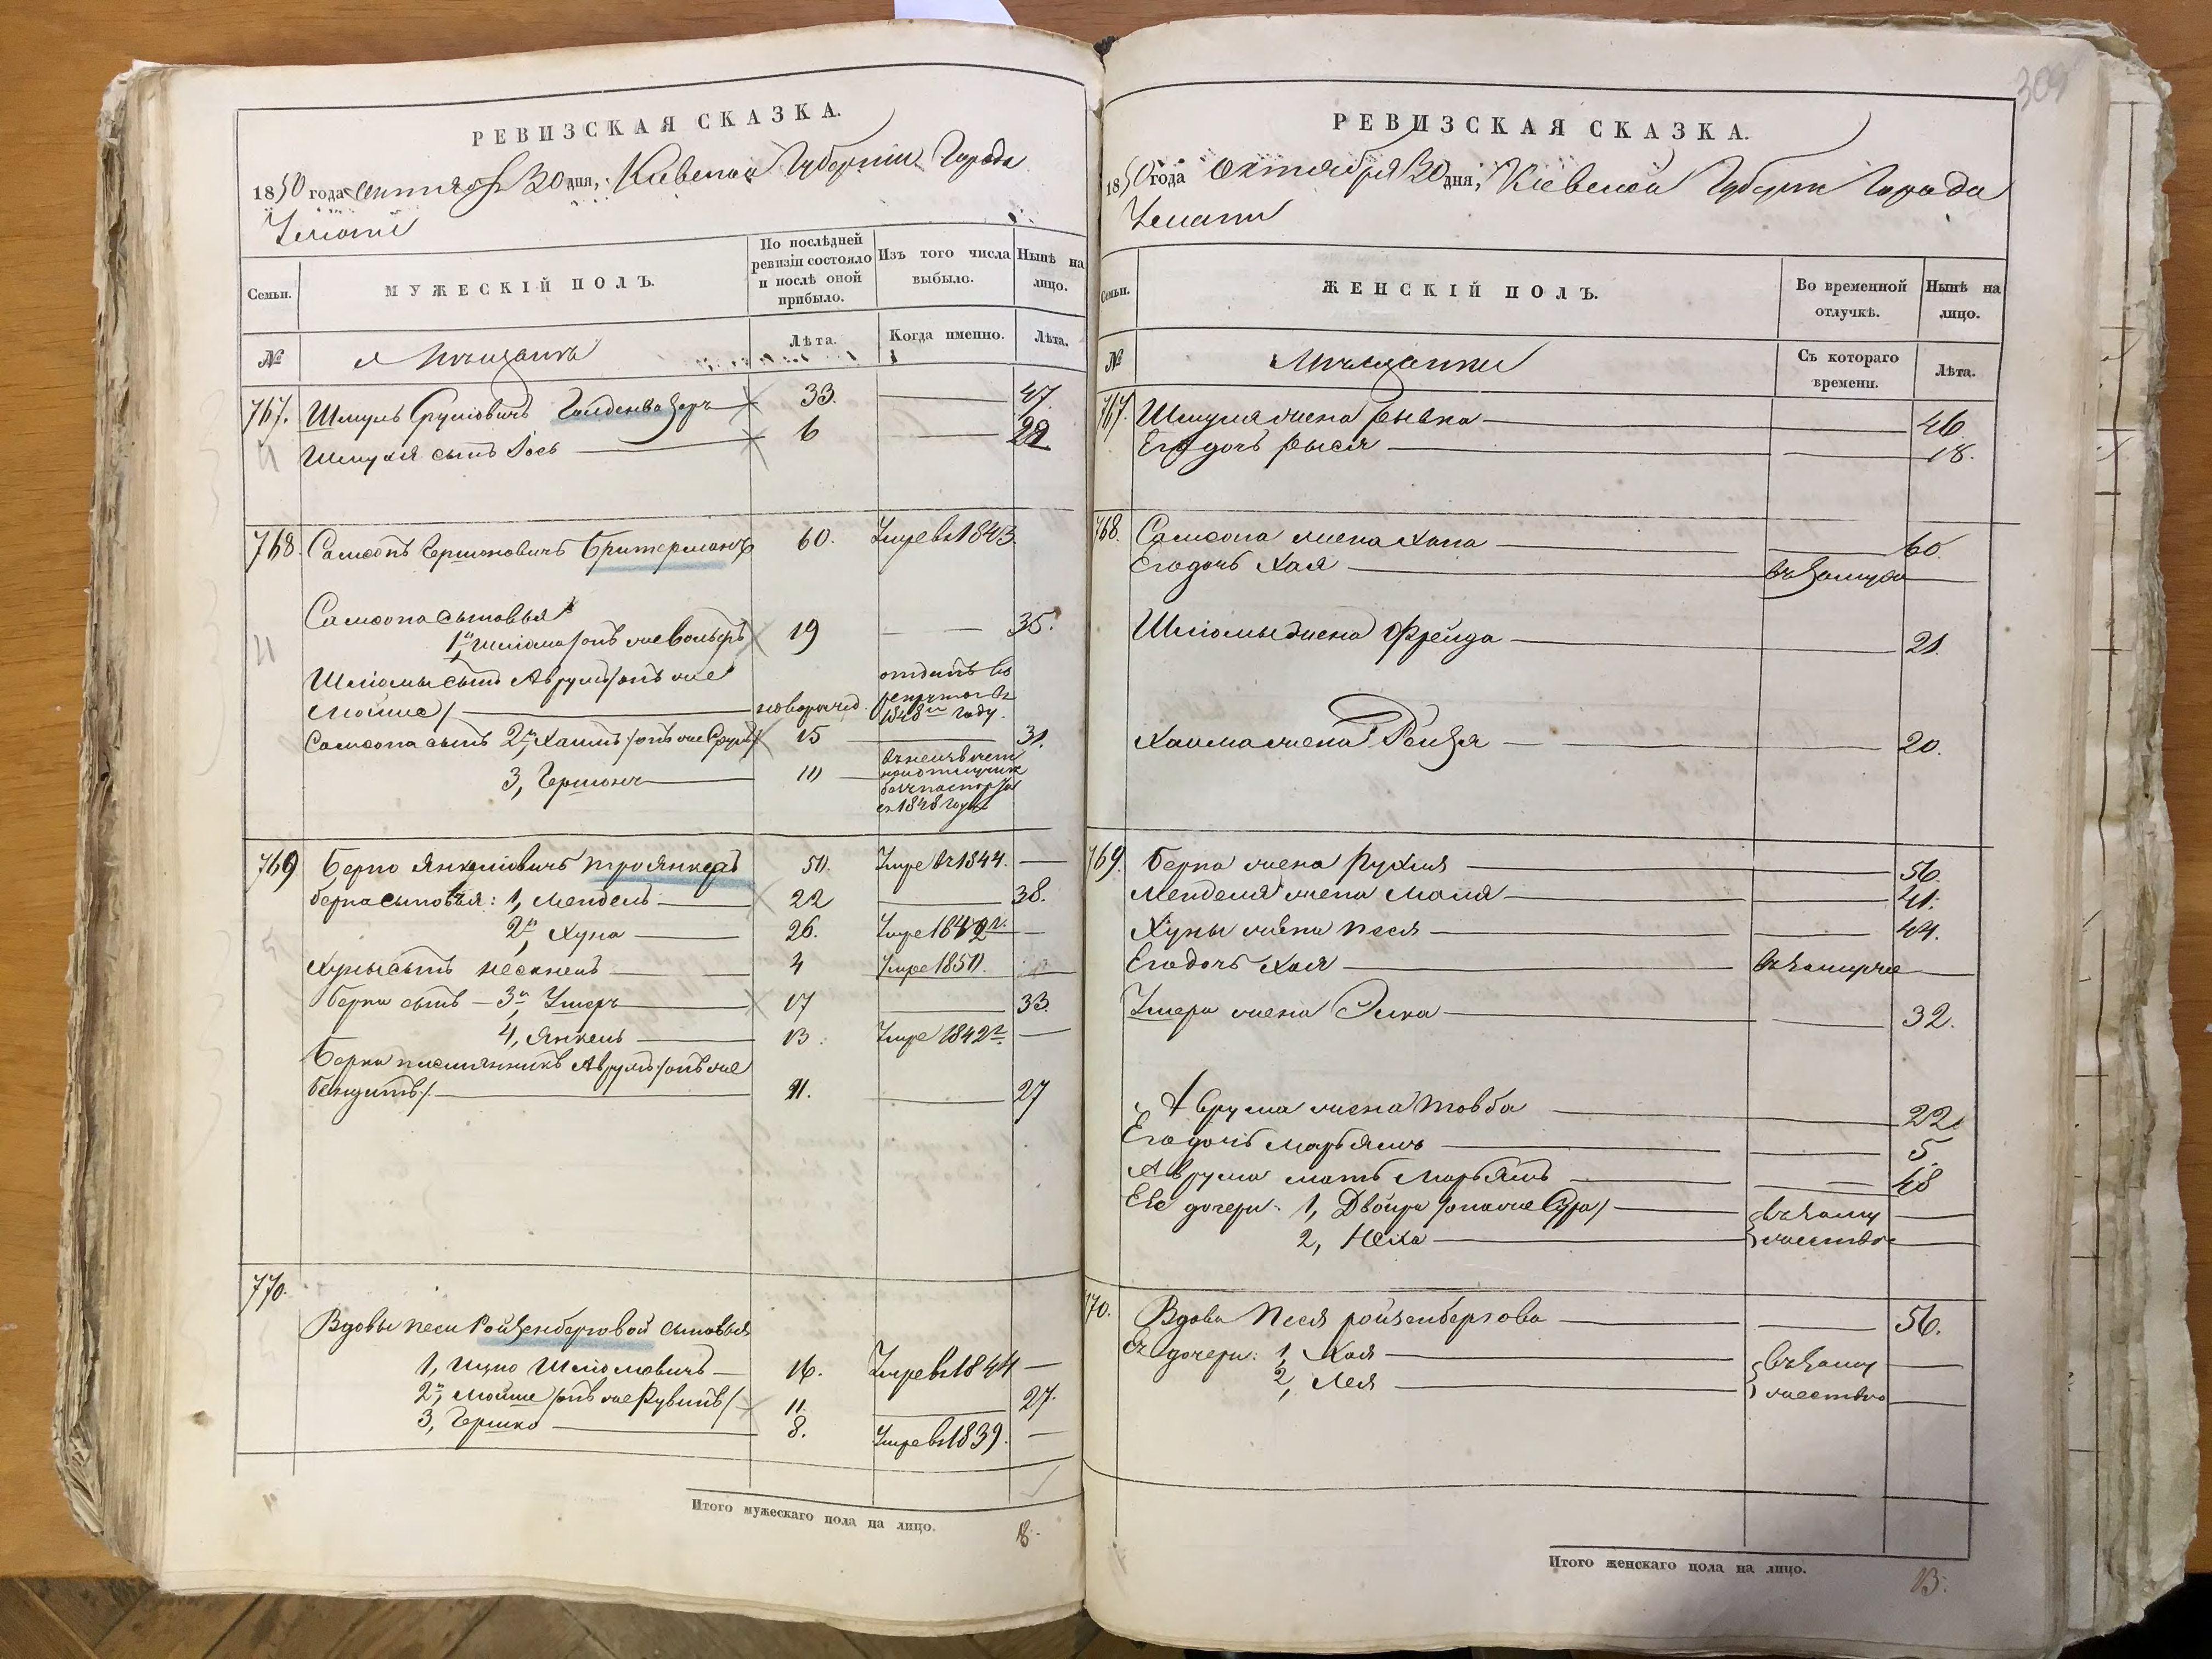 РЕВИЗСКАЯ СКАЗКА.
1850 года октября 30 дня, Кіевской Губерніи Города
Умани
Семьи. МУЖЕСКІЙ ПОЛЪ. По послѣдней ревизіи состояло и послѣ оной прибыло. Изъ того числа выбыло. Нынѣ на лицо.
№ Мѣщанъ Лѣта. Когда именно. Лѣта.
767. Шмуль Сруліовичъ Голденвазеръ 33. 47.
Шмуля сынъ Іось 6 22
768. Самсонъ Гершоновичъ Бритерманъ 60. Умре въ 1843.
Самсона сыновья
1й Шліома /онъ же Вольфъ/ 19 35.
Шліомы сынъ Аврумъ /онъ же
Мошие/ новорожд. отданъ въ рекруты въ 1848м году.
Самсона сынъ 2й, Хаимъ /онъ же Сруль/ 15 31.
3, Гершонъ 10 въ неизвѣстной отлучкѣ съ 1848 года
769 Берко Янкеліовичъ Трояикеръ 50. Умре въ 1844.
Берка сыновья: 1, Мендель 22 38.
2й, Хуна 26. Умре 1842г.
Хуны сынъ 4 Умре 1850.
Берка сынъ 3й, Умеръ 17 33.
4, Янкель 13. Умре 1842г.
Берка племянникъ Аврумъ /онъ же
Бенцинъ/. 11. 27
770.
Вдовы Песи Ройзенберговой сыновья
1, Ицко Шліомовичъ 16. Умре въ 1844
2й, Мошие /онъ же Рувинъ/ 11. 27.
3, Гершко 8. Умре въ 1839.
Итого мужескаго пола на лицо. 8.
309
РЕВИЗСКАЯ СКАЗКА.
1850 года октября 30 дня, Кіевской Губерніи Города
Умани
Семьи. ЖЕНСКІЙ ПОЛЪ. Во временной отлучкѣ. Нынѣ на лицо.
№ Мѣщанки Съ котораго времени. Лѣта.
767. Шмуля жена Рывка 46
Его дочь Рыся 18.
768. Самсона жена Хана 60.
Его дочь Хая въ замужѣ
Шліомы жена Фрейда 21.
Хаима жена Рейзя 20.
769. Берка жена Рухля 56.
Менделя жена Маня 41.
Хуны жена Песя 44.
Его дочь Хая въ замужѣ
Умера жена Элка 32.
Аврума жена Товба 22.
Его дочь Марьямъ 5.
Аврума мать Марьямъ 48
Ее дочери: 1, Двойра /она же Сура/ въ заму
2, Неха жествѣ
770. Вдова Песя Ройзенбергова 56.
Ея дочери: 1, Хая въ заму
2, Лея жествѣ
Итого женскаго пола на лицо. 13.